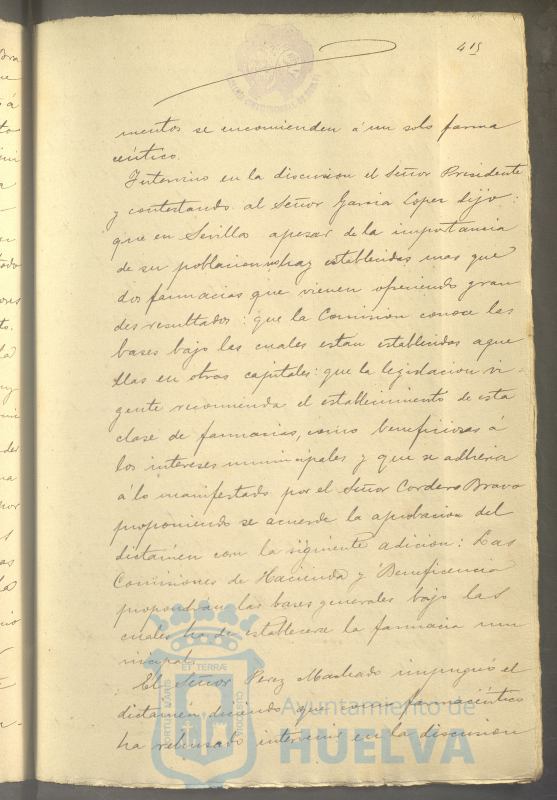 415
mentos se encomienden á un solo farma
céutico.
Intervino en la discusion el Señor Presidente
y contestando al Señor Garcia Lopez dijo:
que en Sevilla apesar de la importancia
de su poblacion no hay establecidas mas que
dos farmacias que vienen ofreciendo gran
des resultados: que la Comision conoce las
bases bajo las cuales estan establecidas aque
llas en otras capitales: que la legislacion vi-
gente recomienda el establecimiento de esta
clase de farmacias, como beneficiosas á
los intereses municipales y que se adheria
á lo manifestado por el Señor Cordero Bravo
proponiendo se acuerde la aprobacion del
dictámen con la siguiente adicion: Las
Comisiones de Hacienda y Beneficencia
propondran las bases generales bajo las
cuales ha de establecerse la farmacia mu
nicipal.
El Señor Perez Machado impugnó el
dictamen diciendo que como farmacéutico
ha rehusado intervenir en la discusion
PORTUS MARIS ET TERRÆ CUSTODIA
Ayuntamiento de
HUELVA